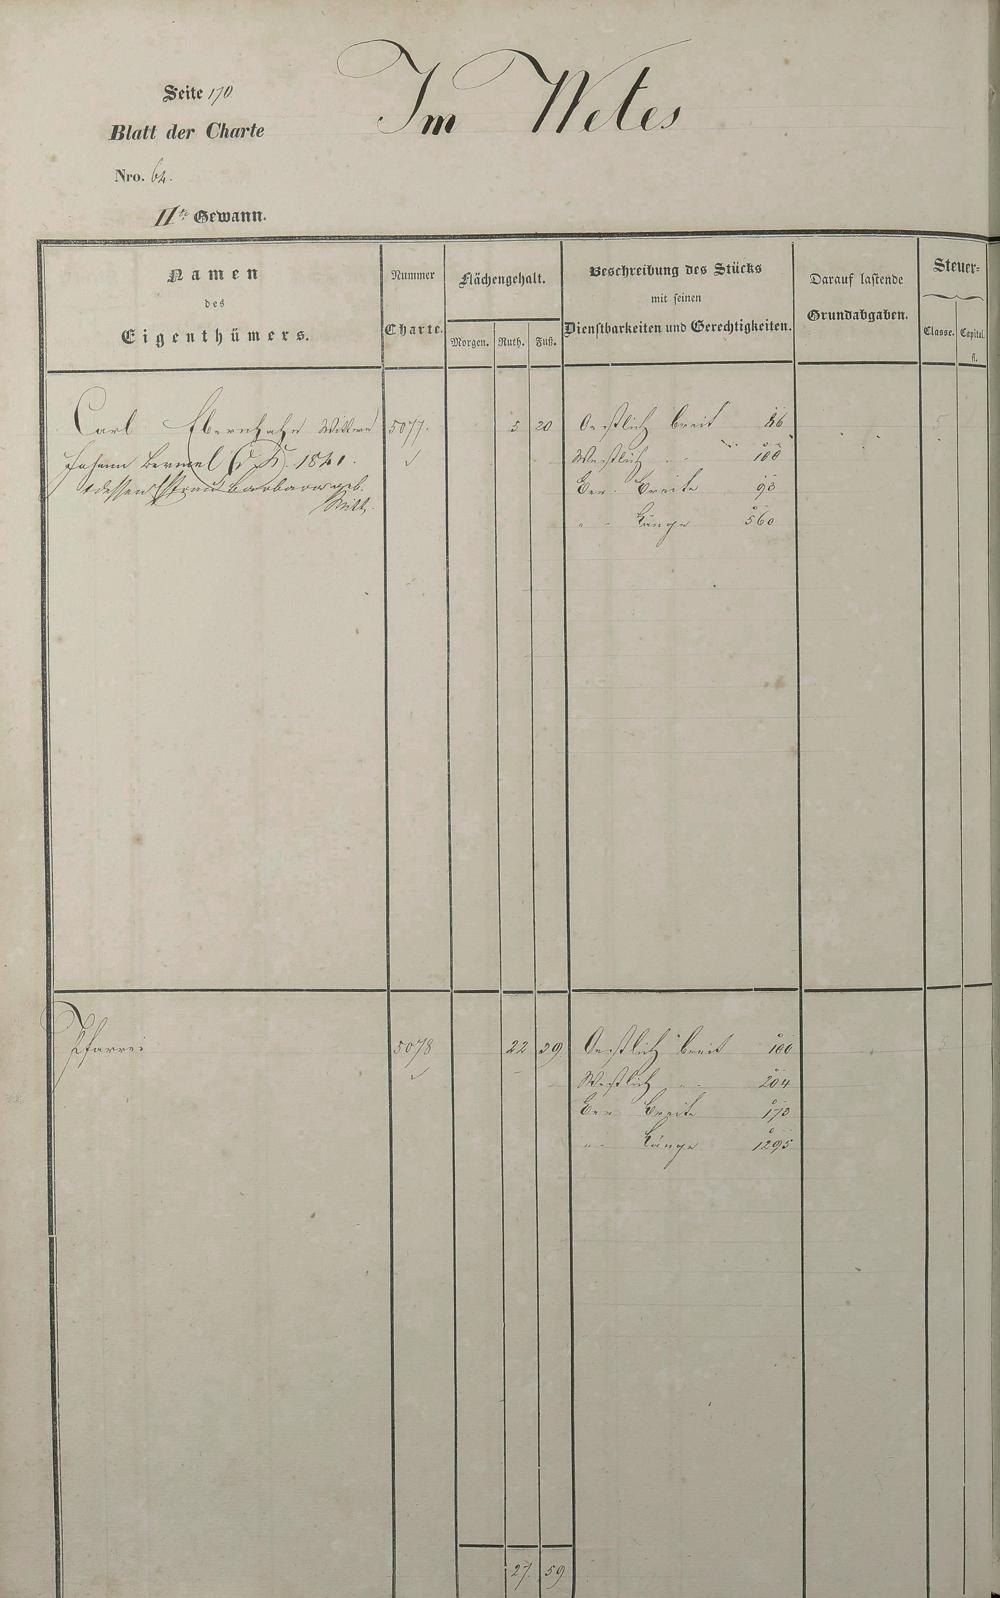 Im Wetes
Seite 170
Blatt der Charte
Nro. 64.
IIte Gewann.
Namen
des
Eigenthümers.
Nummer
Charte.
Flächengehalt.
Morgen. Ruth. Fuß.
Beschreibung des Stücks
mit seinen
Dienstbarkeiten und Gerechtigkeiten.
Darauf lastende
Grundabgaben.
Steuer-
Classe. Capital.
fl.
Carl Ebernhahn Wittwe 5077. 5 20 Oestlich breit 86 5
Johann Bermel 1841. Westlich " - 100
dessen Ehefrau Barbara geb. Ger. Breite 93
Witt. " - Länge 560
Pfarrei 5078 22 39 Oestlich breit 100 5
Westlich " - 204
Ger. Breite 173
" - Länge 1295
27. 59